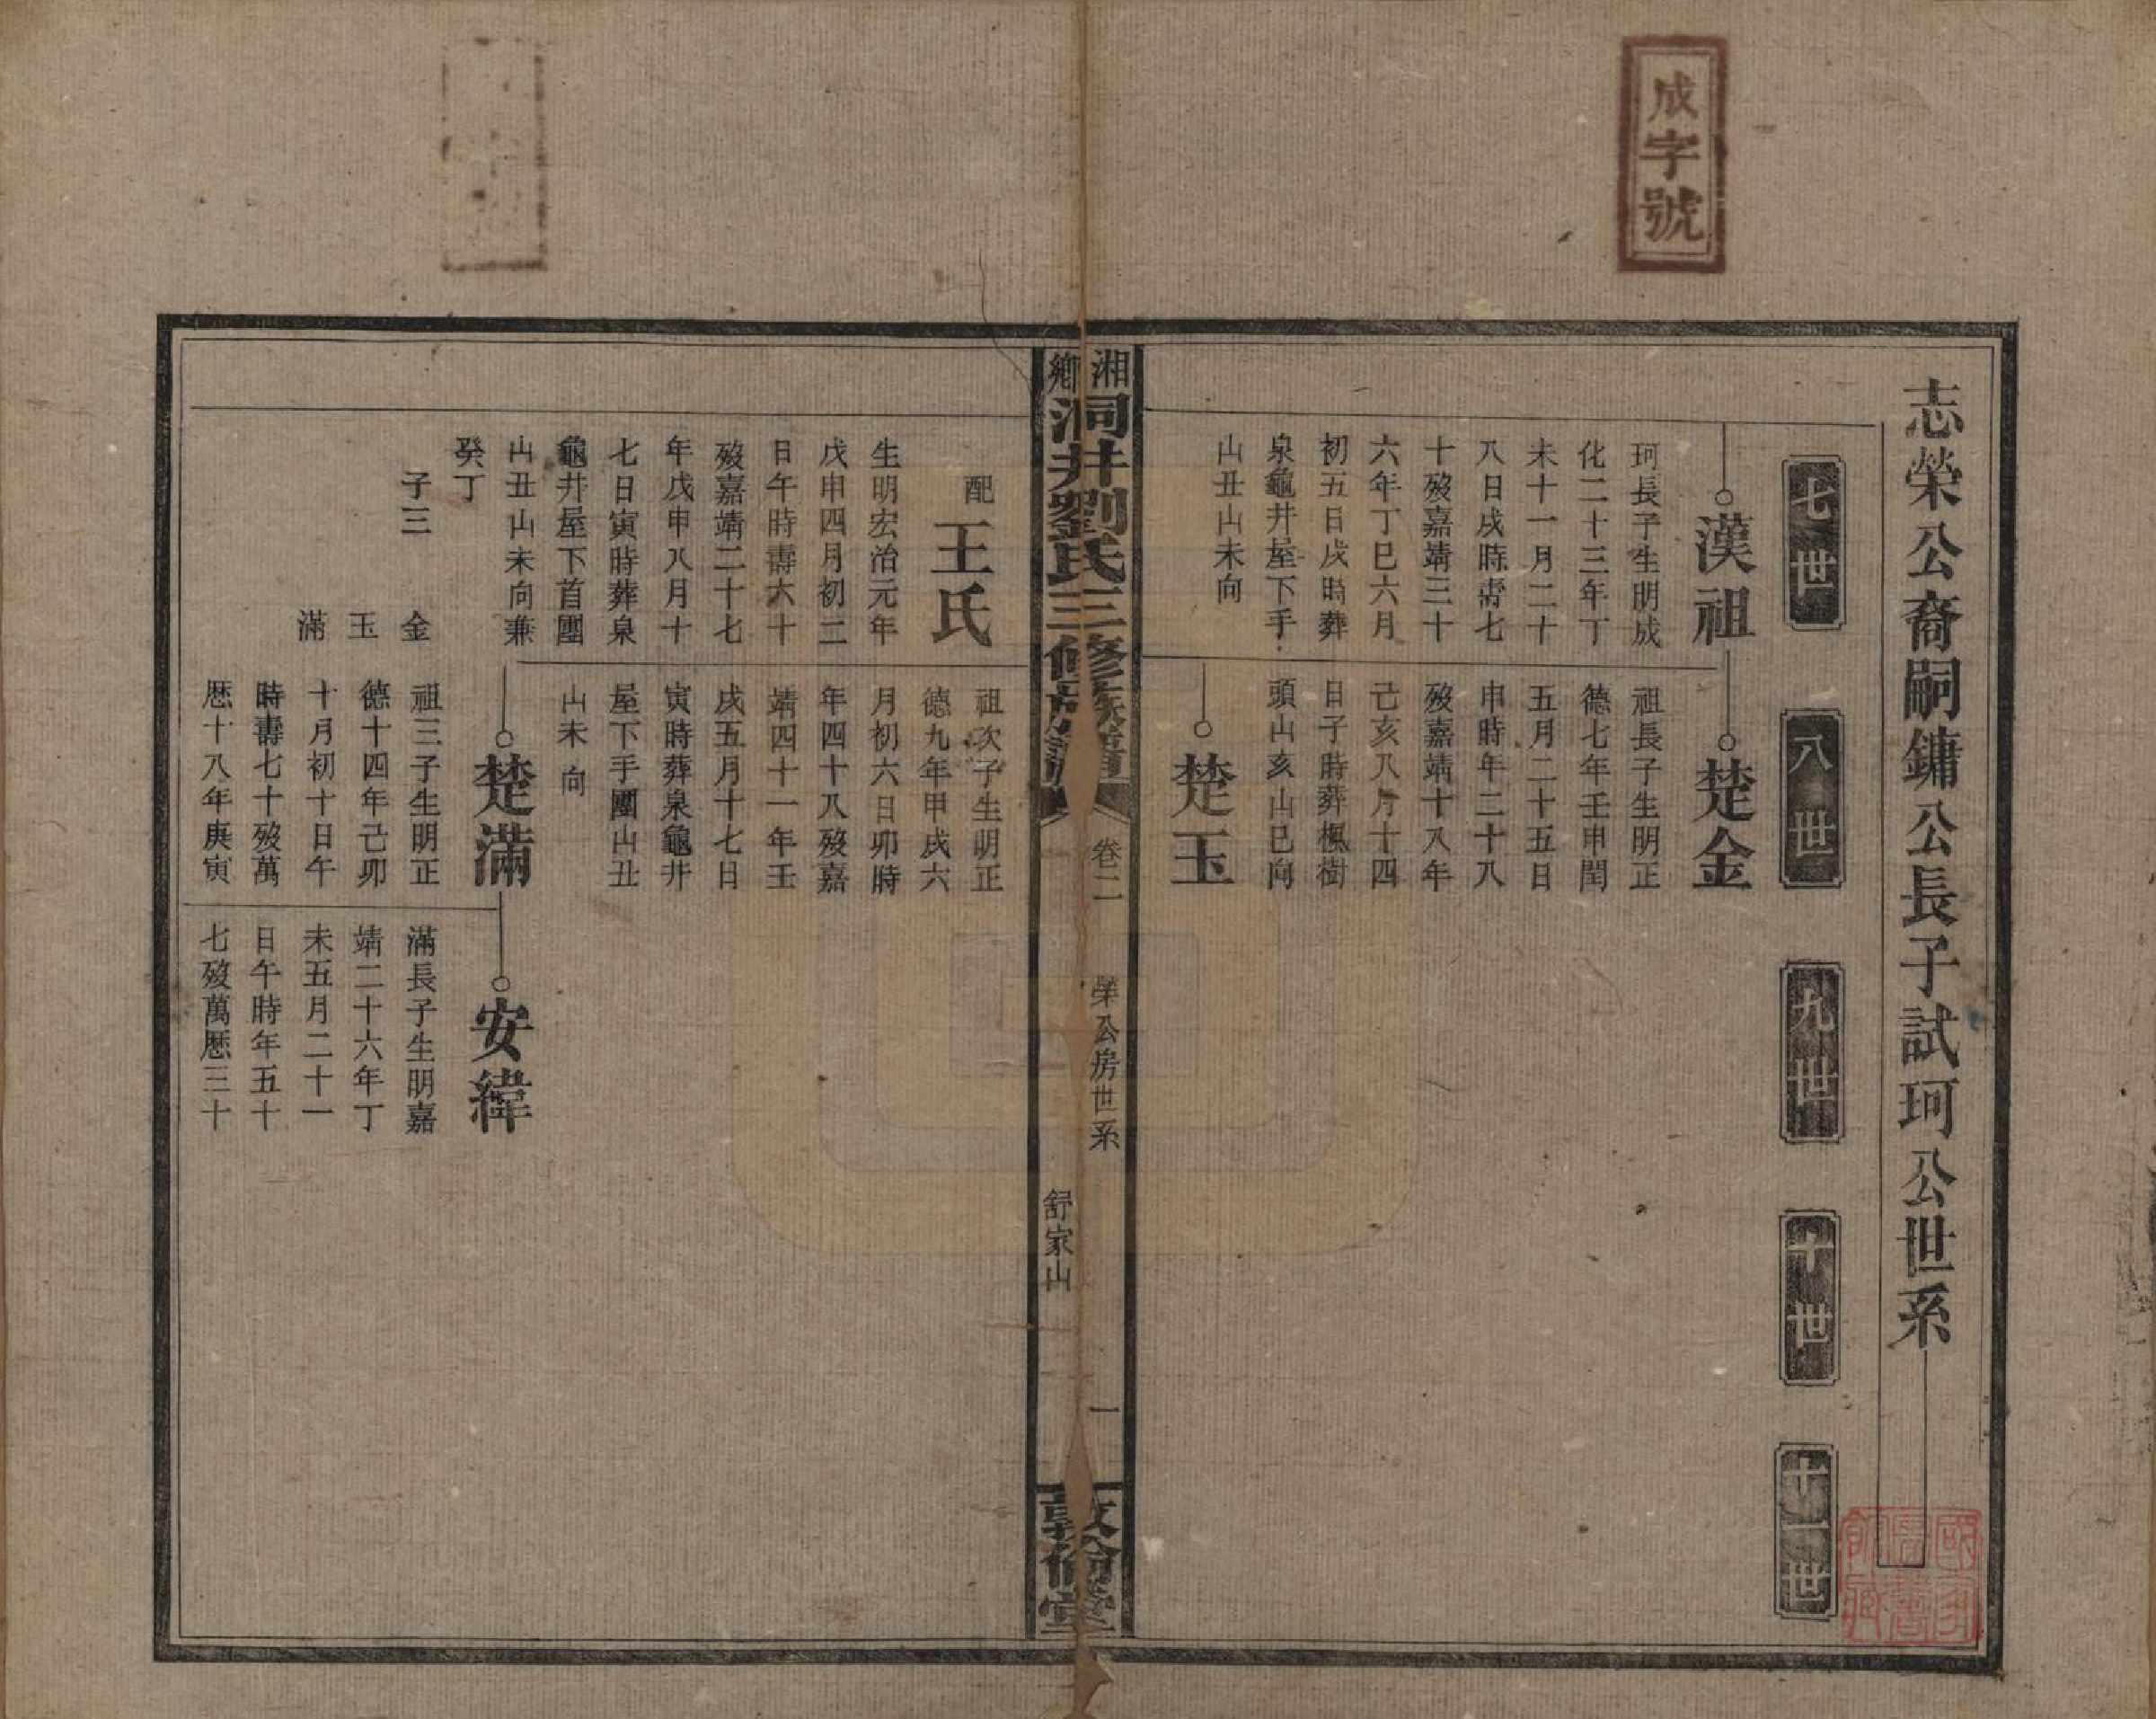 成字號
志榮公裔嗣鏞公長子試珂公世系
七世
八世
九世
十世
十一世
漢祖
珂長子生明成
化二十三年丁
未十一月二十
八日戌時壽七
十歿嘉靖三十
六年丁巳六月
初五日戌時葬
泉龜井屋下手
山丑山未向
楚金
祖長子生明正
德七年壬申閏
五月二十五日
申時年二十八
歿嘉靖十八年
己亥八月十四
日子時葬楓樹
頭山亥山巳向
楚玉
湘鄉洞井劉氏三修族譜
卷二
榮公房世系
舒家山
一
敦倫堂
配王氏
生明宏治元年
戊申四月初二
日午時壽六十
歿嘉靖二十七
年戊申八月十
七日寅時葬泉
龜井屋下首團
山丑山未向兼
癸丁
子三
金
玉
滿
祖次子生明正
德九年甲戌六
月初六日卯時
年四十八歿嘉
靖四十一年壬
戌五月十七日
寅時葬泉龜井
屋下手團山丑
山未向
楚滿
祖三子生明正
德十四年己卯
十月初十日午
時壽七十歿萬
歷十八年庚寅
安緯
滿長子生明嘉
靖二十六年丁
未五月二十一
日午時年五十
七歿萬歷三十